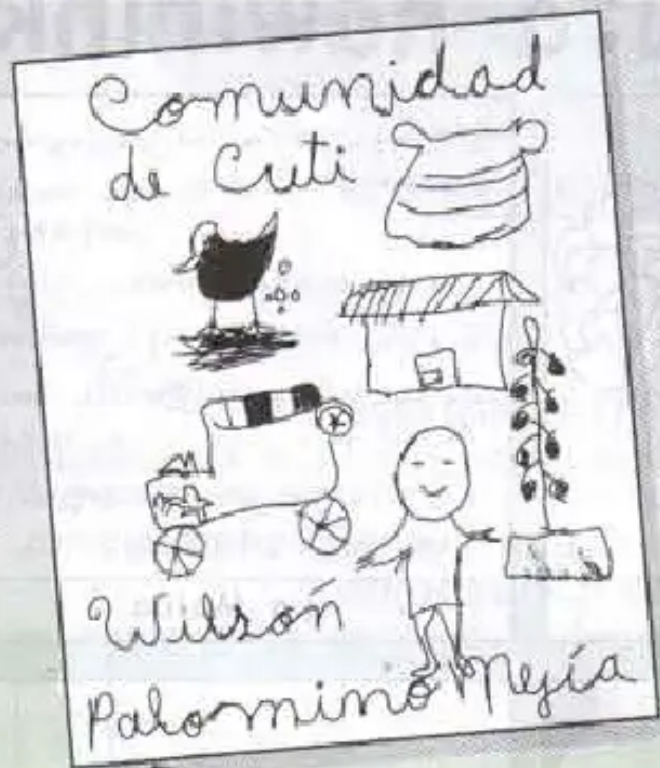 Comunidad
de Cuti
Wilsón
Palomino Mejía